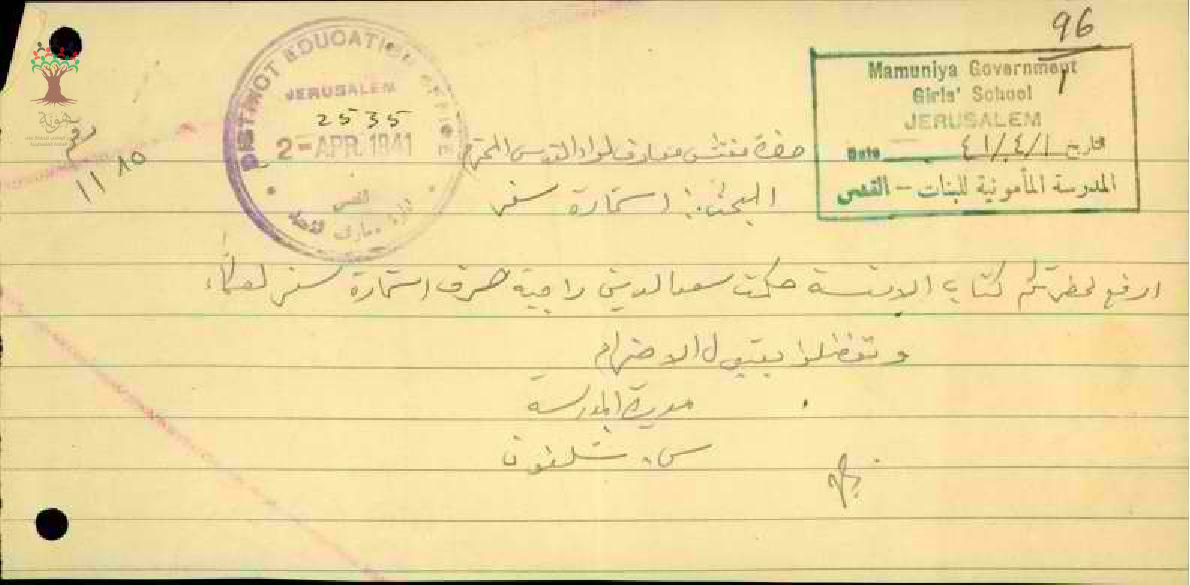 96
Mamuniya Government
Girls' School
JERUSALEM
Date ٤١/٤/١ تاريخ
المدرسة المأمونية للبنات - القدس
DISTRICT EDUCATION OFFICE
JERUSALEM
2535
2 - APR. 1941
القدس
ادارة معارف لواء
رقم
١١٨٥
حضرة مفتش معارف لواء القدس المحترم
البحث: استمارة سفر
ارفع لحضرتكم كتاب الآنسة حكمت سعد الدين راجية صرف استمارة سفر لها
وتفضلوا بقبول الاحترام
مديرة المدرسة
س. شلفون